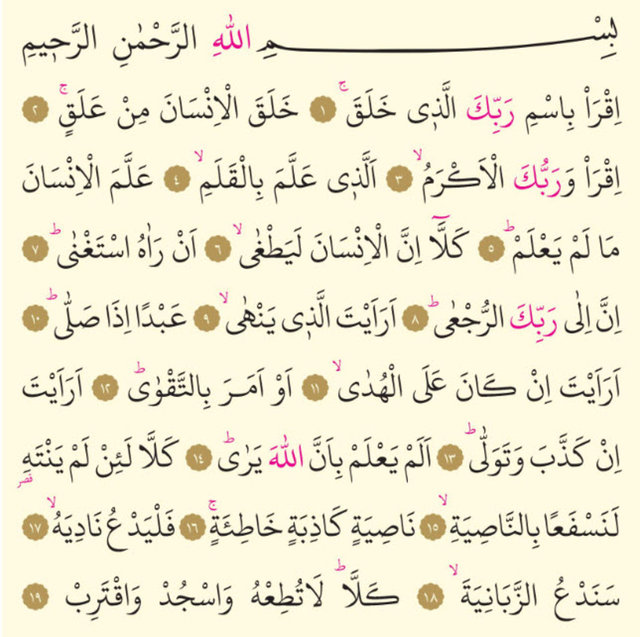 بِسْمِ اللّٰهِ الرَّحْمٰنِ الرَّح۪يمِ
اِقْرَاْ بِاسْمِ رَبِّكَ الَّذ۪ي خَلَقَۚ ١ خَلَقَ الْاِنْسَانَ مِنْ عَلَقٍۚ ٢
اِقْرَاْ وَرَبُّكَ الْاَكْرَمُۙ ٣ اَلَّذ۪ي عَلَّمَ بِالْقَلَمِۙ ٤ عَلَّمَ الْاِنْسَانَ
مَا لَمْ يَعْلَمْۜ ٥ كَلَّٓا اِنَّ الْاِنْسَانَ لَيَطْغٰىۙ ٦ اَنْ رَاٰهُ اسْتَغْنٰىۜ ٧
اِنَّ اِلٰى رَبِّكَ الرُّجْعٰىۜ ٨ اَرَاَيْتَ الَّذ۪ي يَنْهٰىۙ ٩ عَبْدًا اِذَا صَلّٰىۜ ١٠
اَرَاَيْتَ اِنْ كَانَ عَلَى الْهُدٰىۙ ١١ اَوْ اَمَرَ بِالتَّقْوٰىۜ ١٢ اَرَاَيْتَ
اِنْ كَذَّبَ وَتَوَلّٰىۜ ١٣ اَلَمْ يَعْلَمْ بِاَنَّ اللّٰهَ يَرٰىۜ ١٤ كَلَّا لَئِنْ لَمْ يَنْتَهِ قصر
لَنَسْفَعًا بِالنَّاصِيَةِۙ ١٥ نَاصِيَةٍ كَاذِبَةٍ خَاطِئَةٍۚ ١٦ فَلْيَدْعُ نَادِيَهُۙ ١٧
سَنَدْعُ الزَّبَانِيَةَۙ ١٨ كَلَّاۜ لَا تُطِعْهُ وَاسْجُدْ وَاقْتَرِبْ ١٩